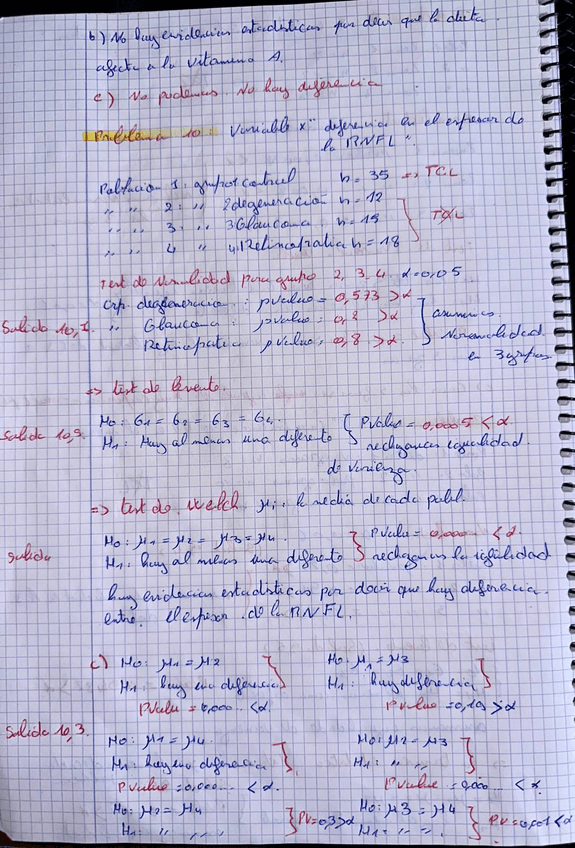 b) No hay evidencias estadisticas por decir que la dieta
afecta a la vitamina A.
c) No podemos. No hay diferencia
Problema 10: Variable x "diferencia en el espesor de
la RNFL".
Poblacion 1: grupo 1 control n = 35 => TCL
" " 2: " 2 degeneración n = 12
" " 3: " 3 Glaucoma n = 15
" " 4 " 4 Retinopatia n = 18
TCL
Test de Normalidad para grupo 2, 3, 4. α=0,05
Salida 10,1
Grp. degeneracion : pvalue = 0,573 >α
" Glaucoma : pvalue = 0,2 >α
Retinopatia pvalue = 0,8 >α
asumimos
Normalidad
en 3 grupos
=> test de levento.
Salida 10,2
H0: σ1 = σ2 = σ3 = σ4.
H1: Hay al menos una diferente
Pvalue = 0,0005 < α
rechazamos igualidad
de varianza.
=> test de Welch μi: la media de cada pobl.
Salida
H0: μ1 = μ2 = μ3 = μ4.
H1: hay al menos una diferente
Pvalue = 0,000... < α
rechazamos la igualidad
hay evidencias estadisticas por decir que hay diferencia.
entre. el espesor de la RNFL.
c) H0: μ1 = μ2
H1 hay una diferencia
Pvalue = 0,000.. <α.
H0: μ1 = μ3
H1: hay diferencia
Pvalue = 0,19 >α
Salida 10,3.
H0: μ1 = μ4
H1: hay una diferencia
Pvalue = 0,000... < α.
H0: μ2 = μ3
H1: " "
Pvalue = 0,00... < α
H0: μ2 = μ4
H1: " " "
PV=0,3>α
H0: μ3 = μ4
H1= " ".
PV=0,001 <α